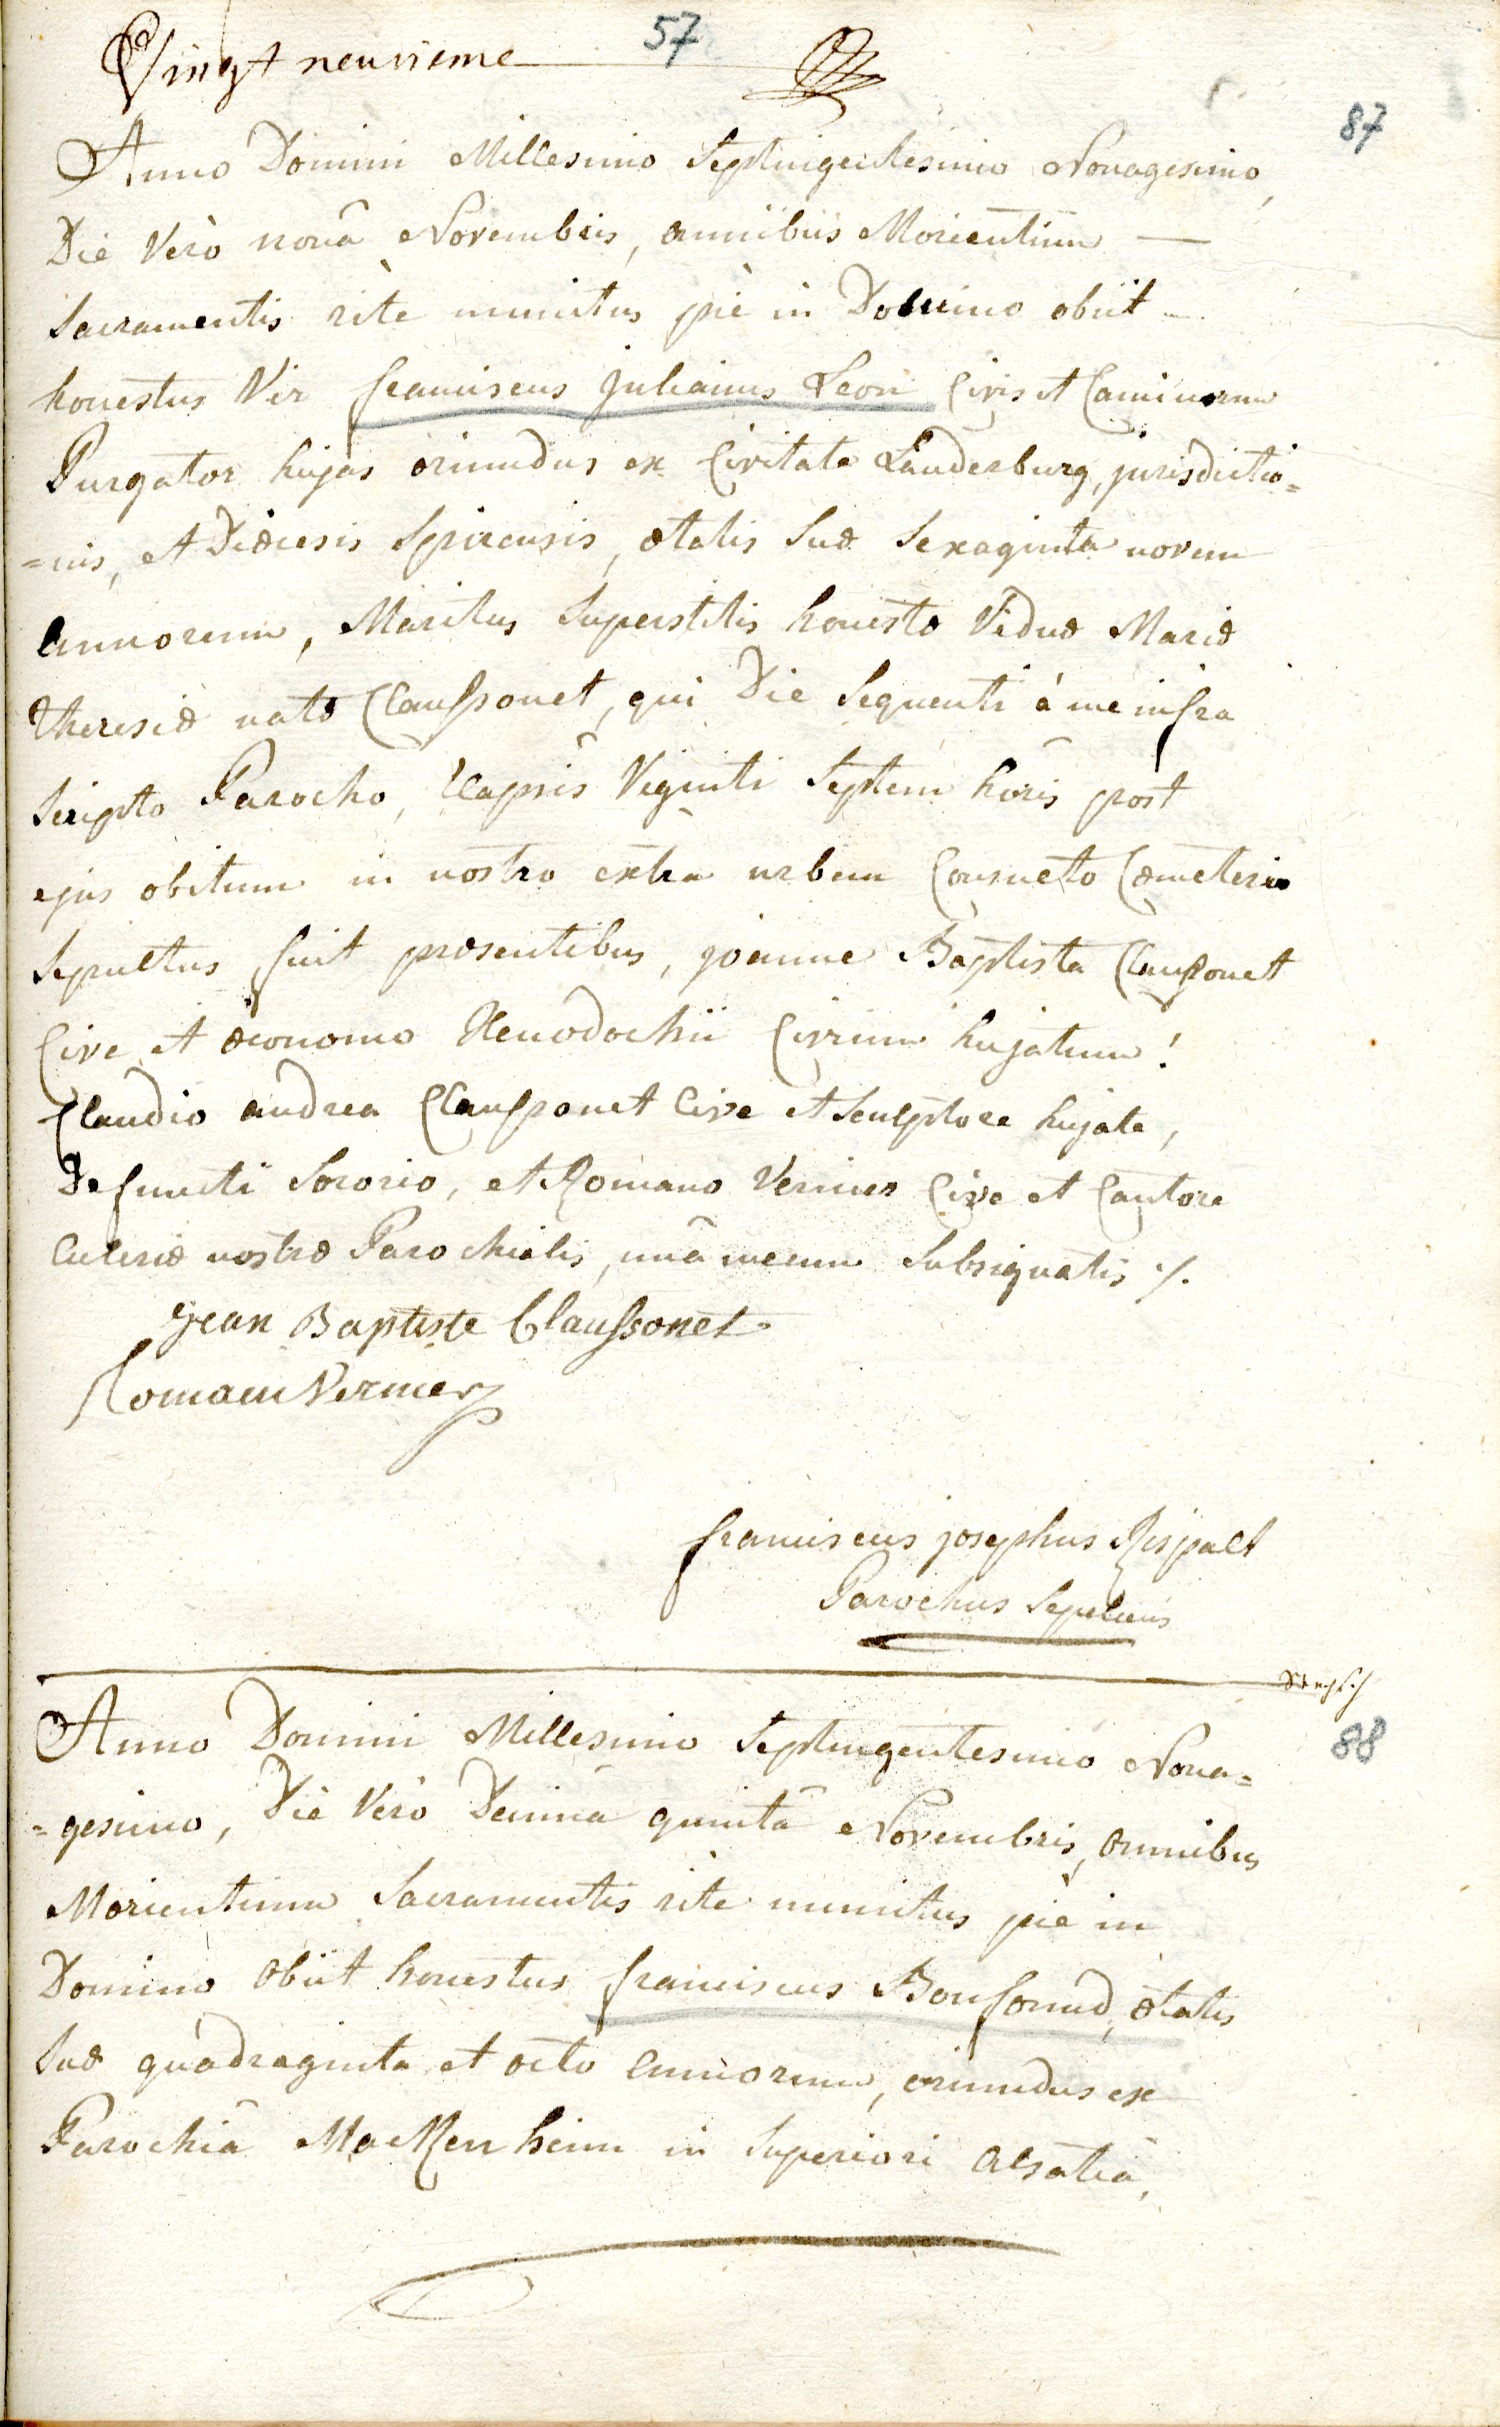 Vingt neuvieme 57
87
Anno Domini Millesimo Septingentesimo Nonagesimo,
Die Verò nonâ Novembris, omnibus Morientium —
Sacramentis rite munitus piè in Domino obiit
honestus Vir franciscus Julianus Leon Civis et Caminorum
Purgator hujas oriundus ex Civitate Lauderburg, jurisdictio=
=nis, et Diœcesis Spirensis, ætatis Suæ Sexaginta novem
annorum, Maritus Superstitis honestæ Viduæ Mariæ
Theresiæ natæ Claussonet, qui Die Sequenti à me infra
Scripto Parocho, Elapsis Viginti Septem horis post
ejus obitum in nostro extra urbem Consueto Cœmeterio
Sepultus fuit præsentibus, joanne Baptista Claussonet
Cive et œconomo Xenodochii Civium hujatum!
Claudio andrea Claussonet Cive et Sculptore hujate,
Defuncti Sororio, et Romano Vernier Cive et Cantore
Eclesiæ nostræ Parochialis, unâ mecum Subsignatis ./.
Jean Baptiste Claussonet
Romain Vernier
franciscus josephus Rispalt
Parochus Sepeliens
88
Anno Domini Millesimo Septingentesimo Nona=
=gesimo, Die Verò Decimâ quintâ Novembris, omnibus
Morientium Sacramentis rite munitus piè in
Domino obiit honestus franciscus Bonfonud, ætatis
Suæ quadraginta et octo annorum, oriundus ex
Parochiâ Mackenheim in Superiori alsatiâ,